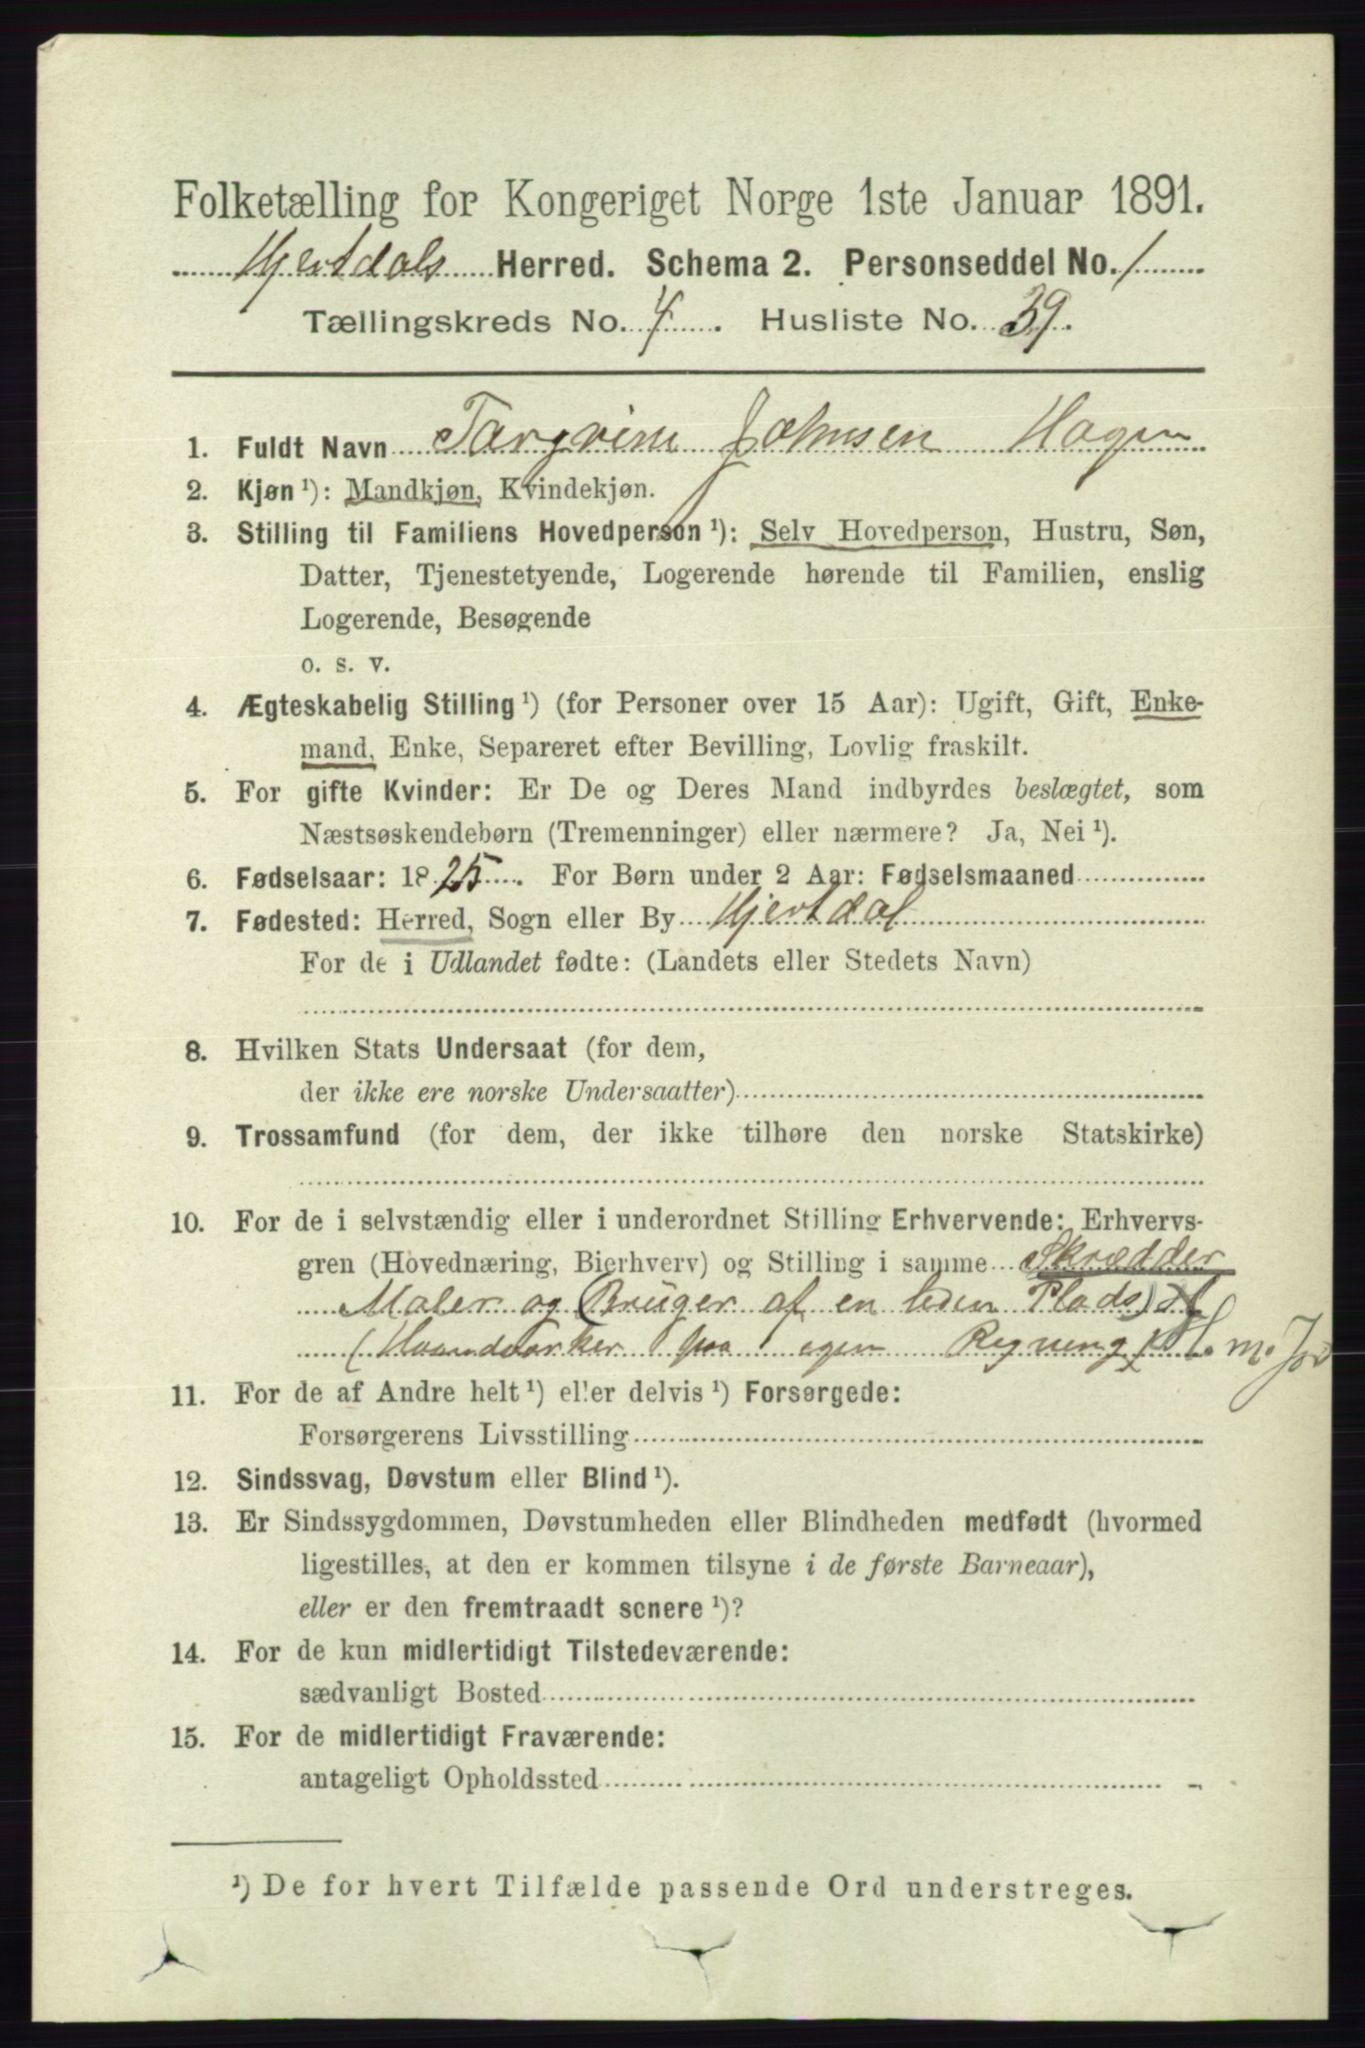 Folketælling for Kongeriget Norge 1ste Januar 1891.
Hjertdals Herred. Schema 2. Personseddel No. 1
Tællingskreds No. 4. Husliste No. 39.
1. Fuldt Navn Targrim Johnsen Hagen
2. Kjøn ¹): Mandkjøn, Kvindekjøn.
3. Stilling til Familiens Hovedperson ¹): Selv Hovedperson, Hustru, Søn,
Datter, Tjenestetyende, Logerende hørende til Familien, enslig
Logerende, Besøgende
o. s. v.
4. Ægteskabelig Stilling ¹) (for Personer over 15 Aar): Ugift, Gift, Enke-
mand, Enke, Separeret efter Bevilling, Lovlig fraskilt.
5. For gifte Kvinder: Er De og Deres Mand indbyrdes beslægtet, som
Næstsøskendebørn (Tremenninger) eller nærmere? Ja, Nei ¹).
6. Fødselsaar: 1825. For Børn under 2 Aar: Fødselsmaaned
7. Fødested: Herred, Sogn eller By Hjertdal
For de i Udlandet fødte: (Landets eller Stedets Navn)
8. Hvilken Stats Undersaat (for dem,
der ikke ere norske Undersaatter)
9. Trossamfund (for dem, der ikke tilhøre den norske Statskirke)
10. For de i selvstændig eller i underordnet Stilling Erhvervende: Erhvervs-
gren (Hovednæring, Bierhverv) og Stilling i samme Skrædder
Maler og (Bruger af en liden Plads)
(Haandværker paa egen Regning) H. m. Jo
11. For de af Andre helt ¹) eller delvis ¹) Forsørgede:
Forsørgerens Livsstilling
12. Sindssvag, Døvstum eller Blind ¹).
13. Er Sindssygdommen, Døvstumheden eller Blindheden medfødt (hvormed
ligestilles, at den er kommen tilsyne i de første Barneaar),
eller er den fremtraadt senere ¹)?
14. For de kun midlertidigt Tilstedeværende:
sædvanligt Bosted
15. For de midlertidigt Fraværende:
antageligt Opholdssted
¹) De for hvert Tilfælde passende Ord understreges.